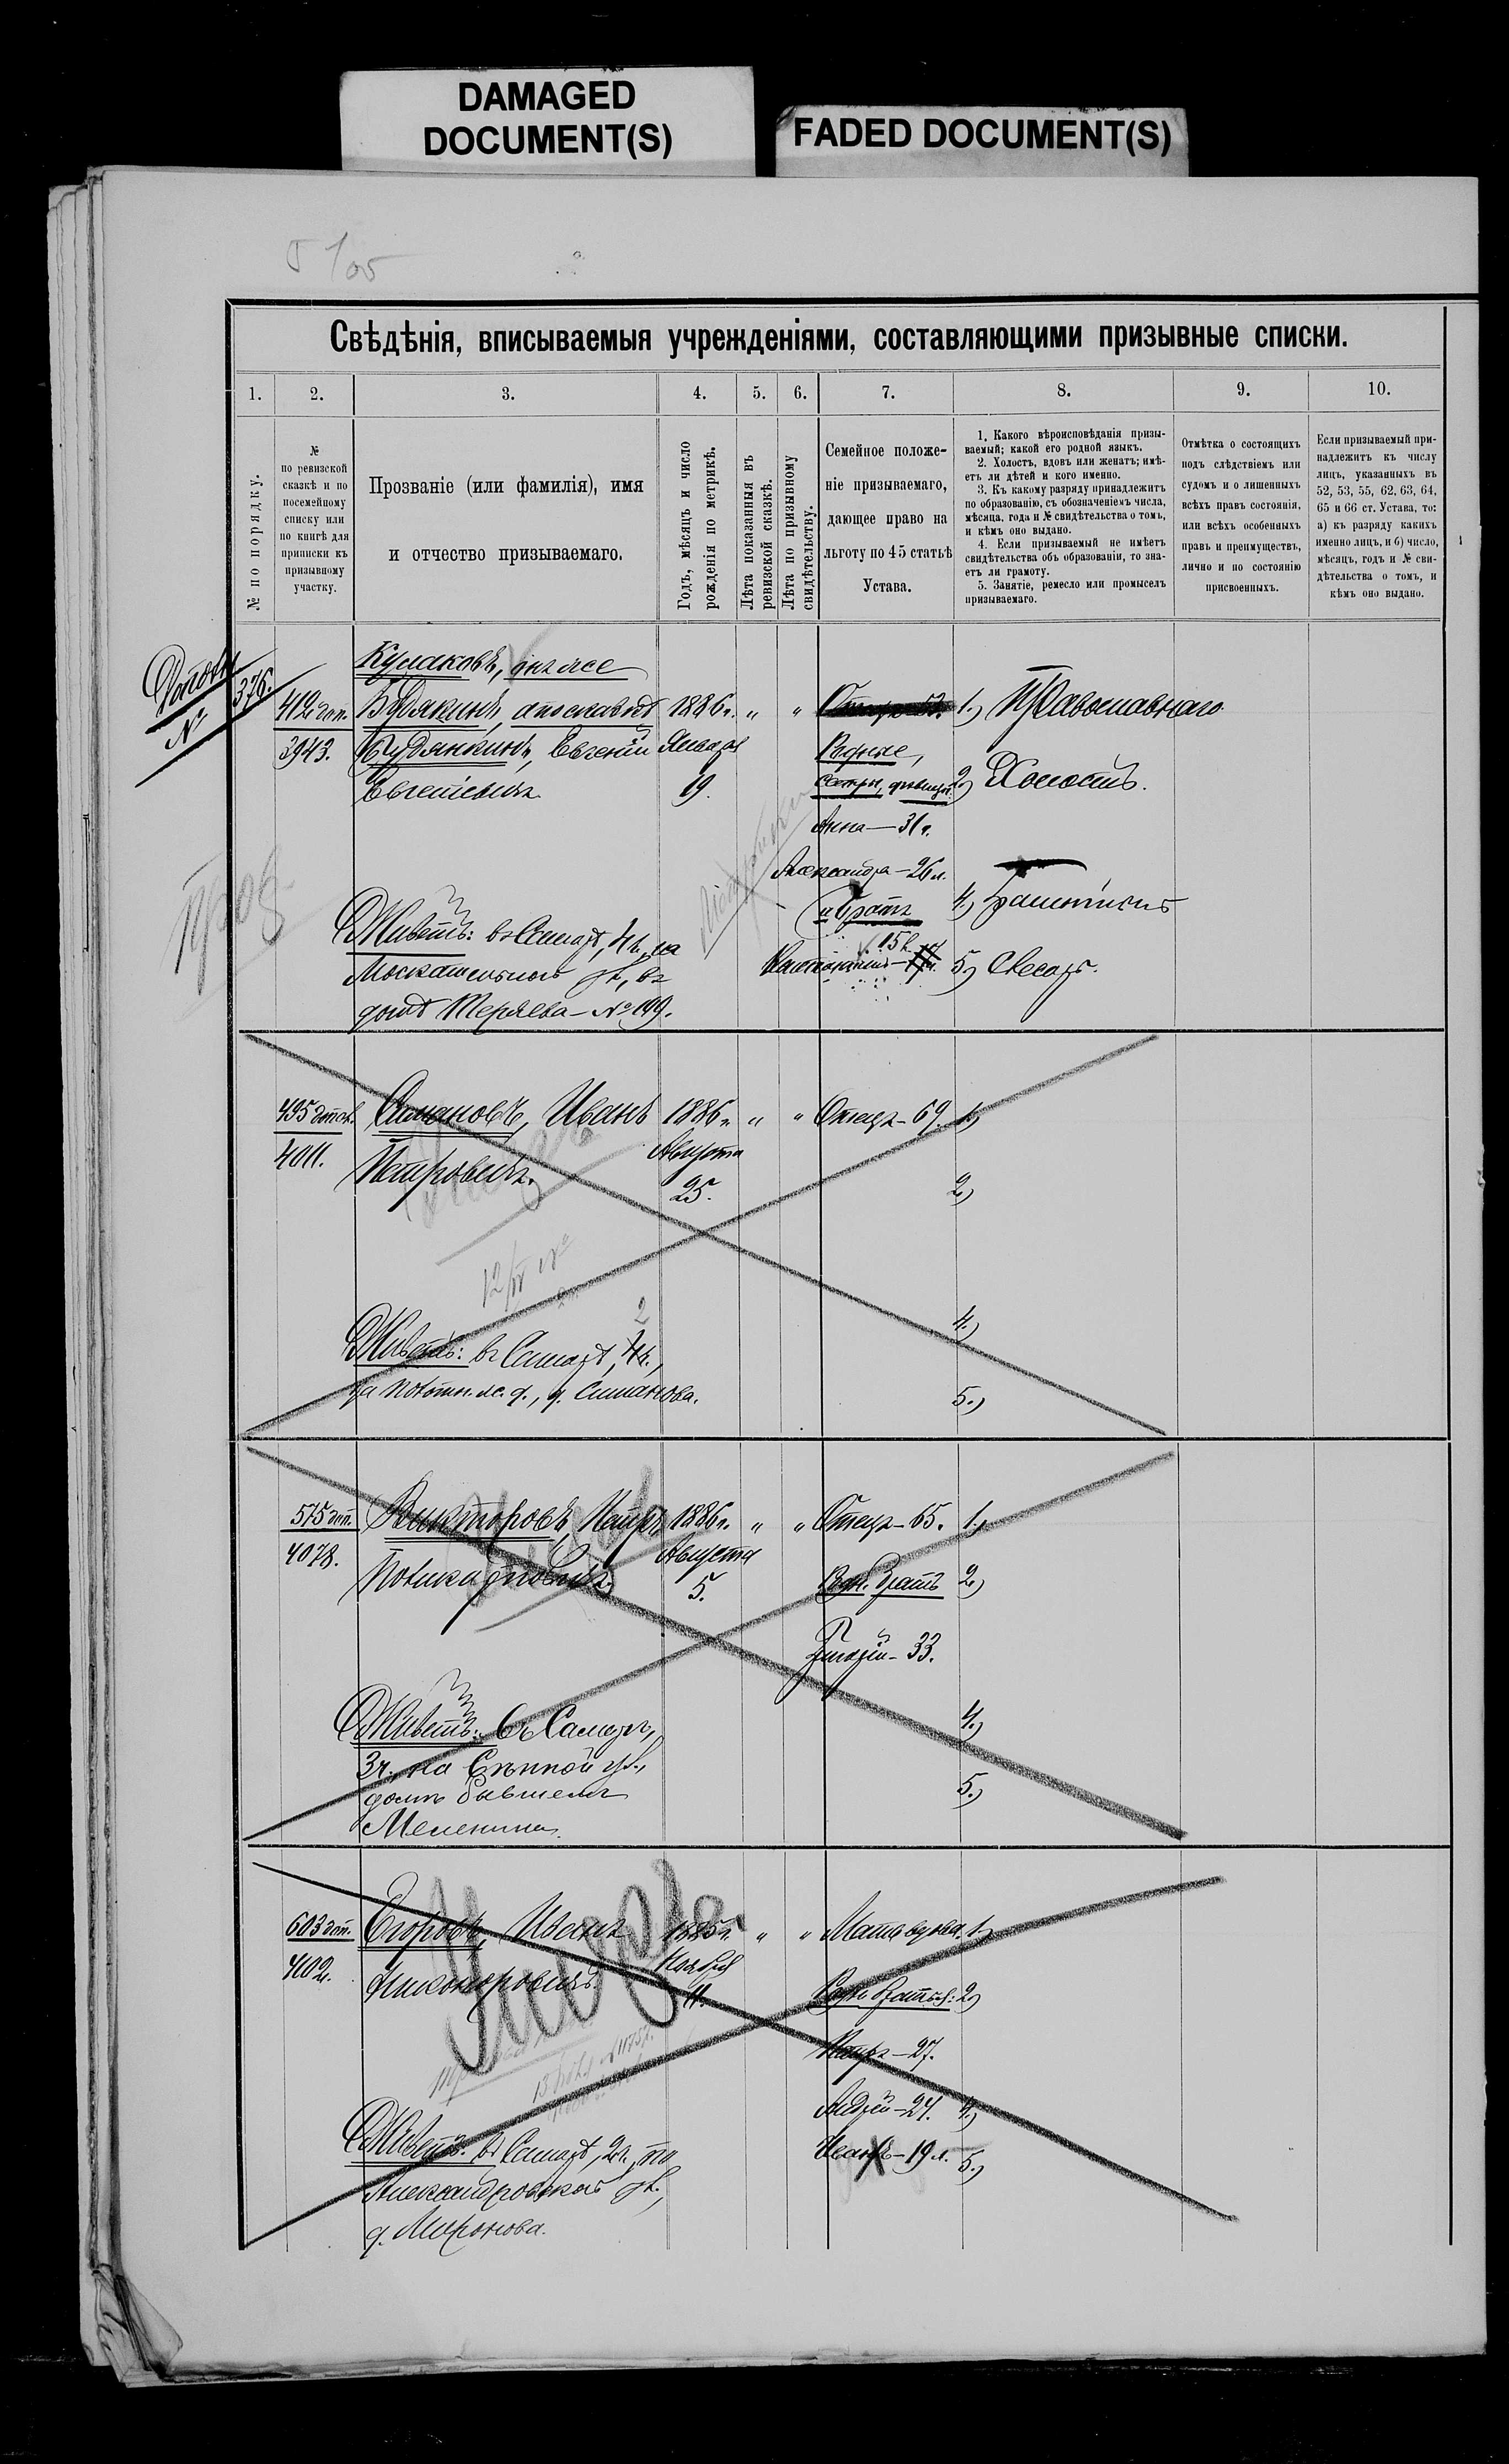 DAMAGED
DOCUMENT(S)
FADED DOCUMENT(S)
Свѣдѣнія, вписываемыя учрежденіями, составляющими призывные списки.
1.
2.
3.
4.
5.
6.
7.
8.
9.
10.
№ по порядку.
№
по ревизской
сказкѣ и по
посемейному
списку или
по книгѣ для
приписки къ
призывному
участку.
Прозваніе (или фамилія), имя
и отчество призываемаго.
Годъ, мѣсяцъ и число
рожденія по метрикѣ.
Лѣта показанныя въ
ревизской сказкѣ.
Лѣта по призывному
свидѣтельству.
Семейное положе-
ніе призываемаго,
дающее право на
льготу по 45 статьѣ
Устава.
1. Какого вѣроисповѣданія призы-
ваемый; какой его родной языкъ.
2. Холостъ, вдовъ или женатъ; имѣ-
етъ ли дѣтей и кого именно.
3. Къ какому разряду принадлежитъ
по образованію, съ обозначеніемъ числа,
мѣсяца, года и № свидѣтельства о томъ,
и кѣмъ оно выдано.
4. Если призываемый не имѣетъ
свидѣтельства объ образованіи, то зна-
етъ ли грамоту.
5. Занятіе, ремесло или промыселъ
призываемаго.
Отмѣтка о состоящихъ
подъ слѣдствіемъ или
судомъ и о лишенныхъ
всѣхъ правъ состоянія,
или всѣхъ особенныхъ
правъ и преимуществъ,
лично и по состоянію
присвоенныхъ.
Если призываемый при-
надлежитъ къ числу
лицъ, указанныхъ въ
52, 53, 55, 62, 63, 64,
65 и 66 ст. Устава, то:
а) къ разряду какихъ
именно лицъ, и б) число,
мѣсяцъ, годъ и № сви-
дѣтельства о томъ, и
кѣмъ оно выдано.
№ 376.
412 доп.
3943.
Кулаковъ, онъ же
Будякинъ,
Будянкинъ, Евгеній
Евгеніевичъ
1886 г. " "
Января
19.
Родные,
сестры, дѣвицы:
Анна — 31 г.
Александра — 26 л.
и братъ
15 л.
1.) Православнаго
2.) Холостъ.
4.) Грамотенъ
5.) Слесарь.
Живетъ: въ Самарѣ, 4 ч., на
Москательной ул., въ
домѣ Теряева — № 199.
495 доп.
4011.
Симановъ, Иванъ
Петровичъ.
1886 г. " "
Августа
25.
Отецъ — 69.
1.)
2.)
4.)
5.)
2
Живетъ: въ Самарѣ, 4 ч.,
д. Симанова.
575 доп.
4078.
Викторовъ, Петръ
Поликарповичъ
1886 г. " "
Августа
5.
Отецъ — 65.
Родн. братъ
Григорій — 33.
1.)
2.)
4.)
5.)
Живетъ: въ Самарѣ,
3 ч., на Сѣнной ул.,
домъ бывшемъ
603 доп.
4102.
Егоровъ, Иванъ
Никоноровичъ
1885 г. " "
Ноября
11.
Мать вдова.
Родн. братья:
Петръ — 27.
Андрей — 24.
Иванъ — 19 л.
1.)
2.)
4.)
5.)
Умеръ
Живетъ: въ Самарѣ, 2 ч., по
Александровской ул.,
д. Миронова.